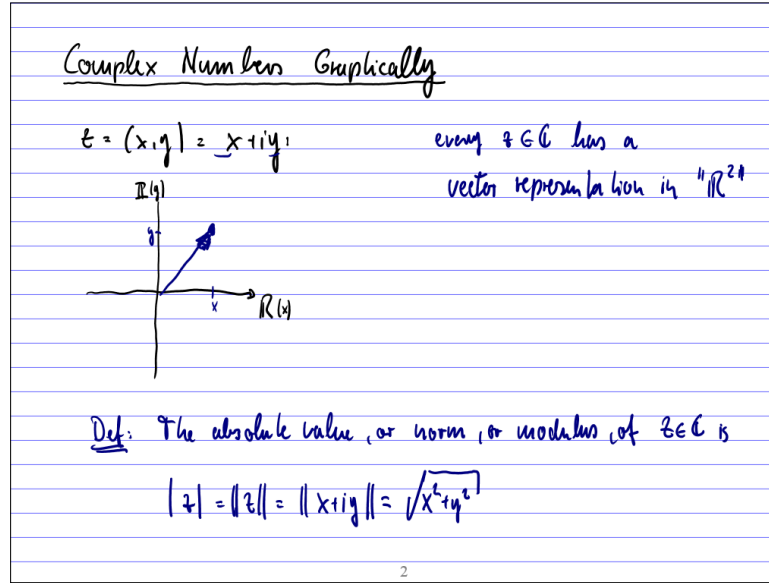 Complex Numbers Graphically
z = (x,y) = x+iy:
every z ∈ ℂ has a
vector representation in "ℝ²"
𝕀(y)
y
x
ℝ(x)
Def: The absolute value, or norm, or modulus, of z ∈ ℂ is
|z| = ||z|| = ||x+iy|| = √x²+y²
2